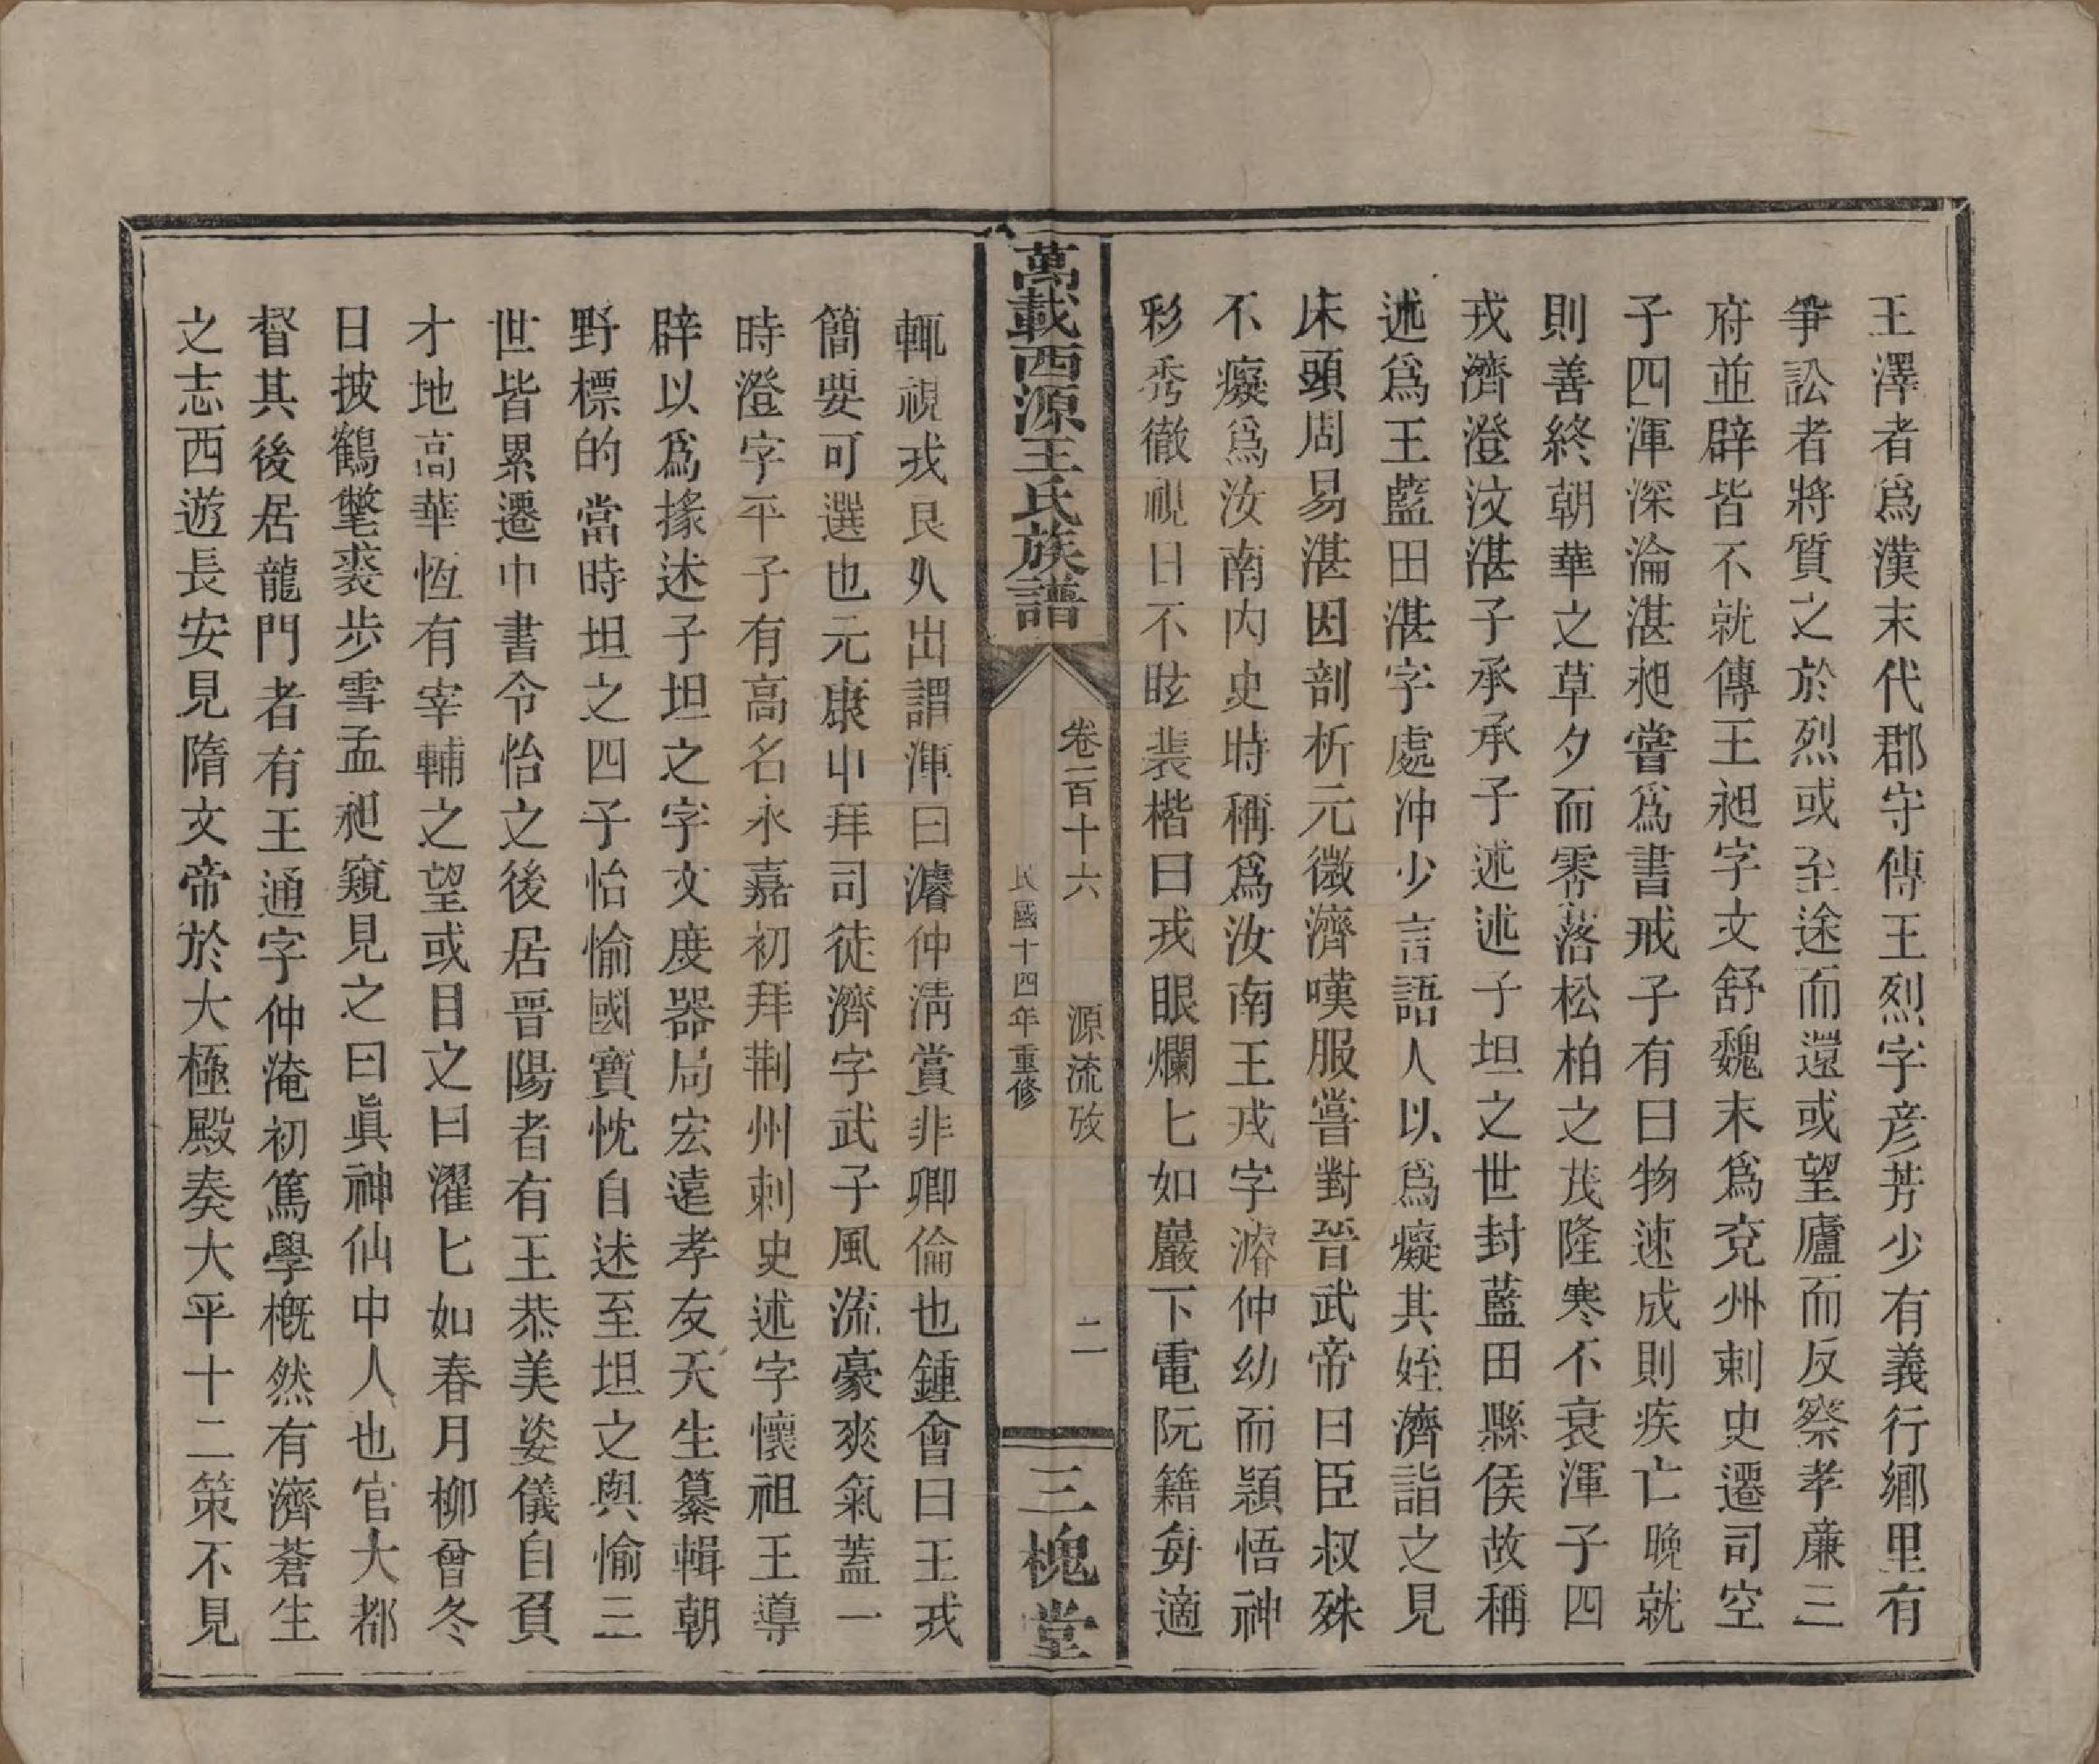 王澤者爲漢末代郡守傳王烈字彥芳少有義行鄉里有
爭訟者將質之於烈或至途而還或望廬而反察孝廉三
府並辟皆不就傳王昶字文舒魏末爲兗州刺史遷司空
子四渾深淪湛昶嘗爲書戒子有曰物速成則疾亡晚就
則善終朝華之草夕而零落松柏之茂隆寒不衰渾子四
戎濟澄汶湛子承承子述述子坦之世封藍田縣侯故稱
述爲王藍田湛字處沖少言語人以爲癡其姪濟詣之見
床頭周易湛因剖析元微濟嘆服嘗對晉武帝曰臣叔殊
不癡爲汝南內史時稱爲汝南王戎字濬仲幼而穎悟神
彩秀徹視日不眩裴楷曰戎眼爛匕如巖下電阮籍每適
萬載西源王氏族譜
卷二百十六 源流攷 二
民國十四年重修
三槐堂
輒視戎良久出謂渾曰濬仲清賞非卿倫也鍾會曰王戎
簡要可選也元康中拜司徒濟字武子風流豪爽氣蓋一
時澄字平子有高名永嘉初拜荆州刺史述字懷祖王導
辟以爲掾述子坦之字文度器局宏遠孝友天生纂輯朝
野標的當時坦之四子怡愉國寶忱自述至坦之與愉三
世皆累遷中書令怡之後居晉陽者有王恭美姿儀自負
才地高華恆有宰輔之望或目之曰濯匕如春月柳曾冬
日披鶴氅裘步雪孟昶窺見之曰眞神仙中人也官大都
督其後居龍門者有王通字仲淹初篤學槪然有濟蒼生
之志西遊長安見隋文帝於大極殿奏大平十二策不見